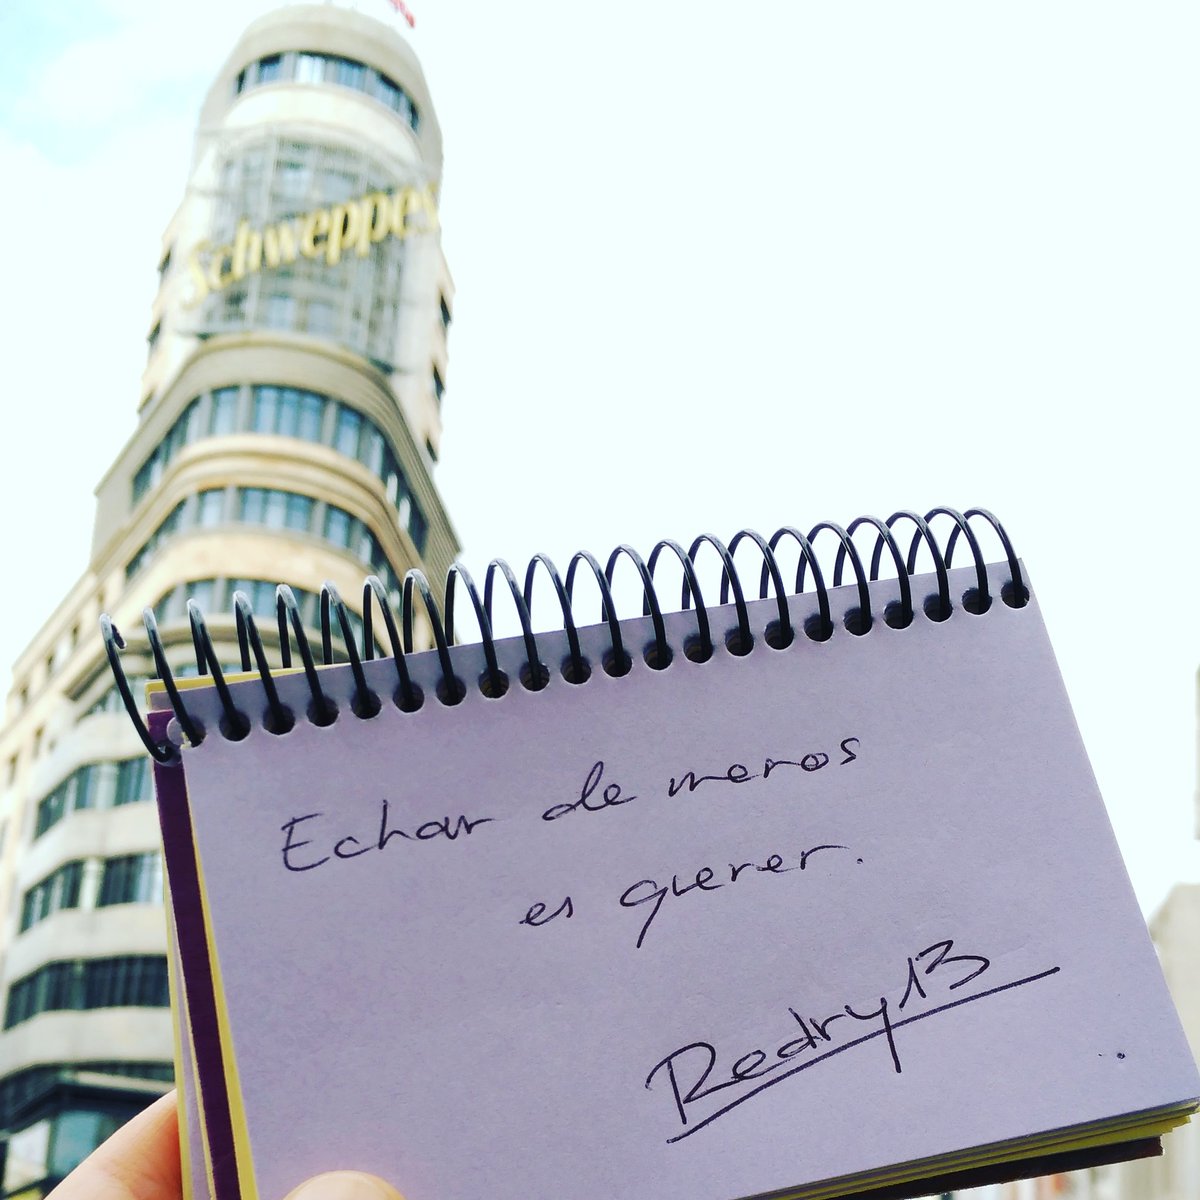 Schweppes
Echar de menos
es querer.
Redry13